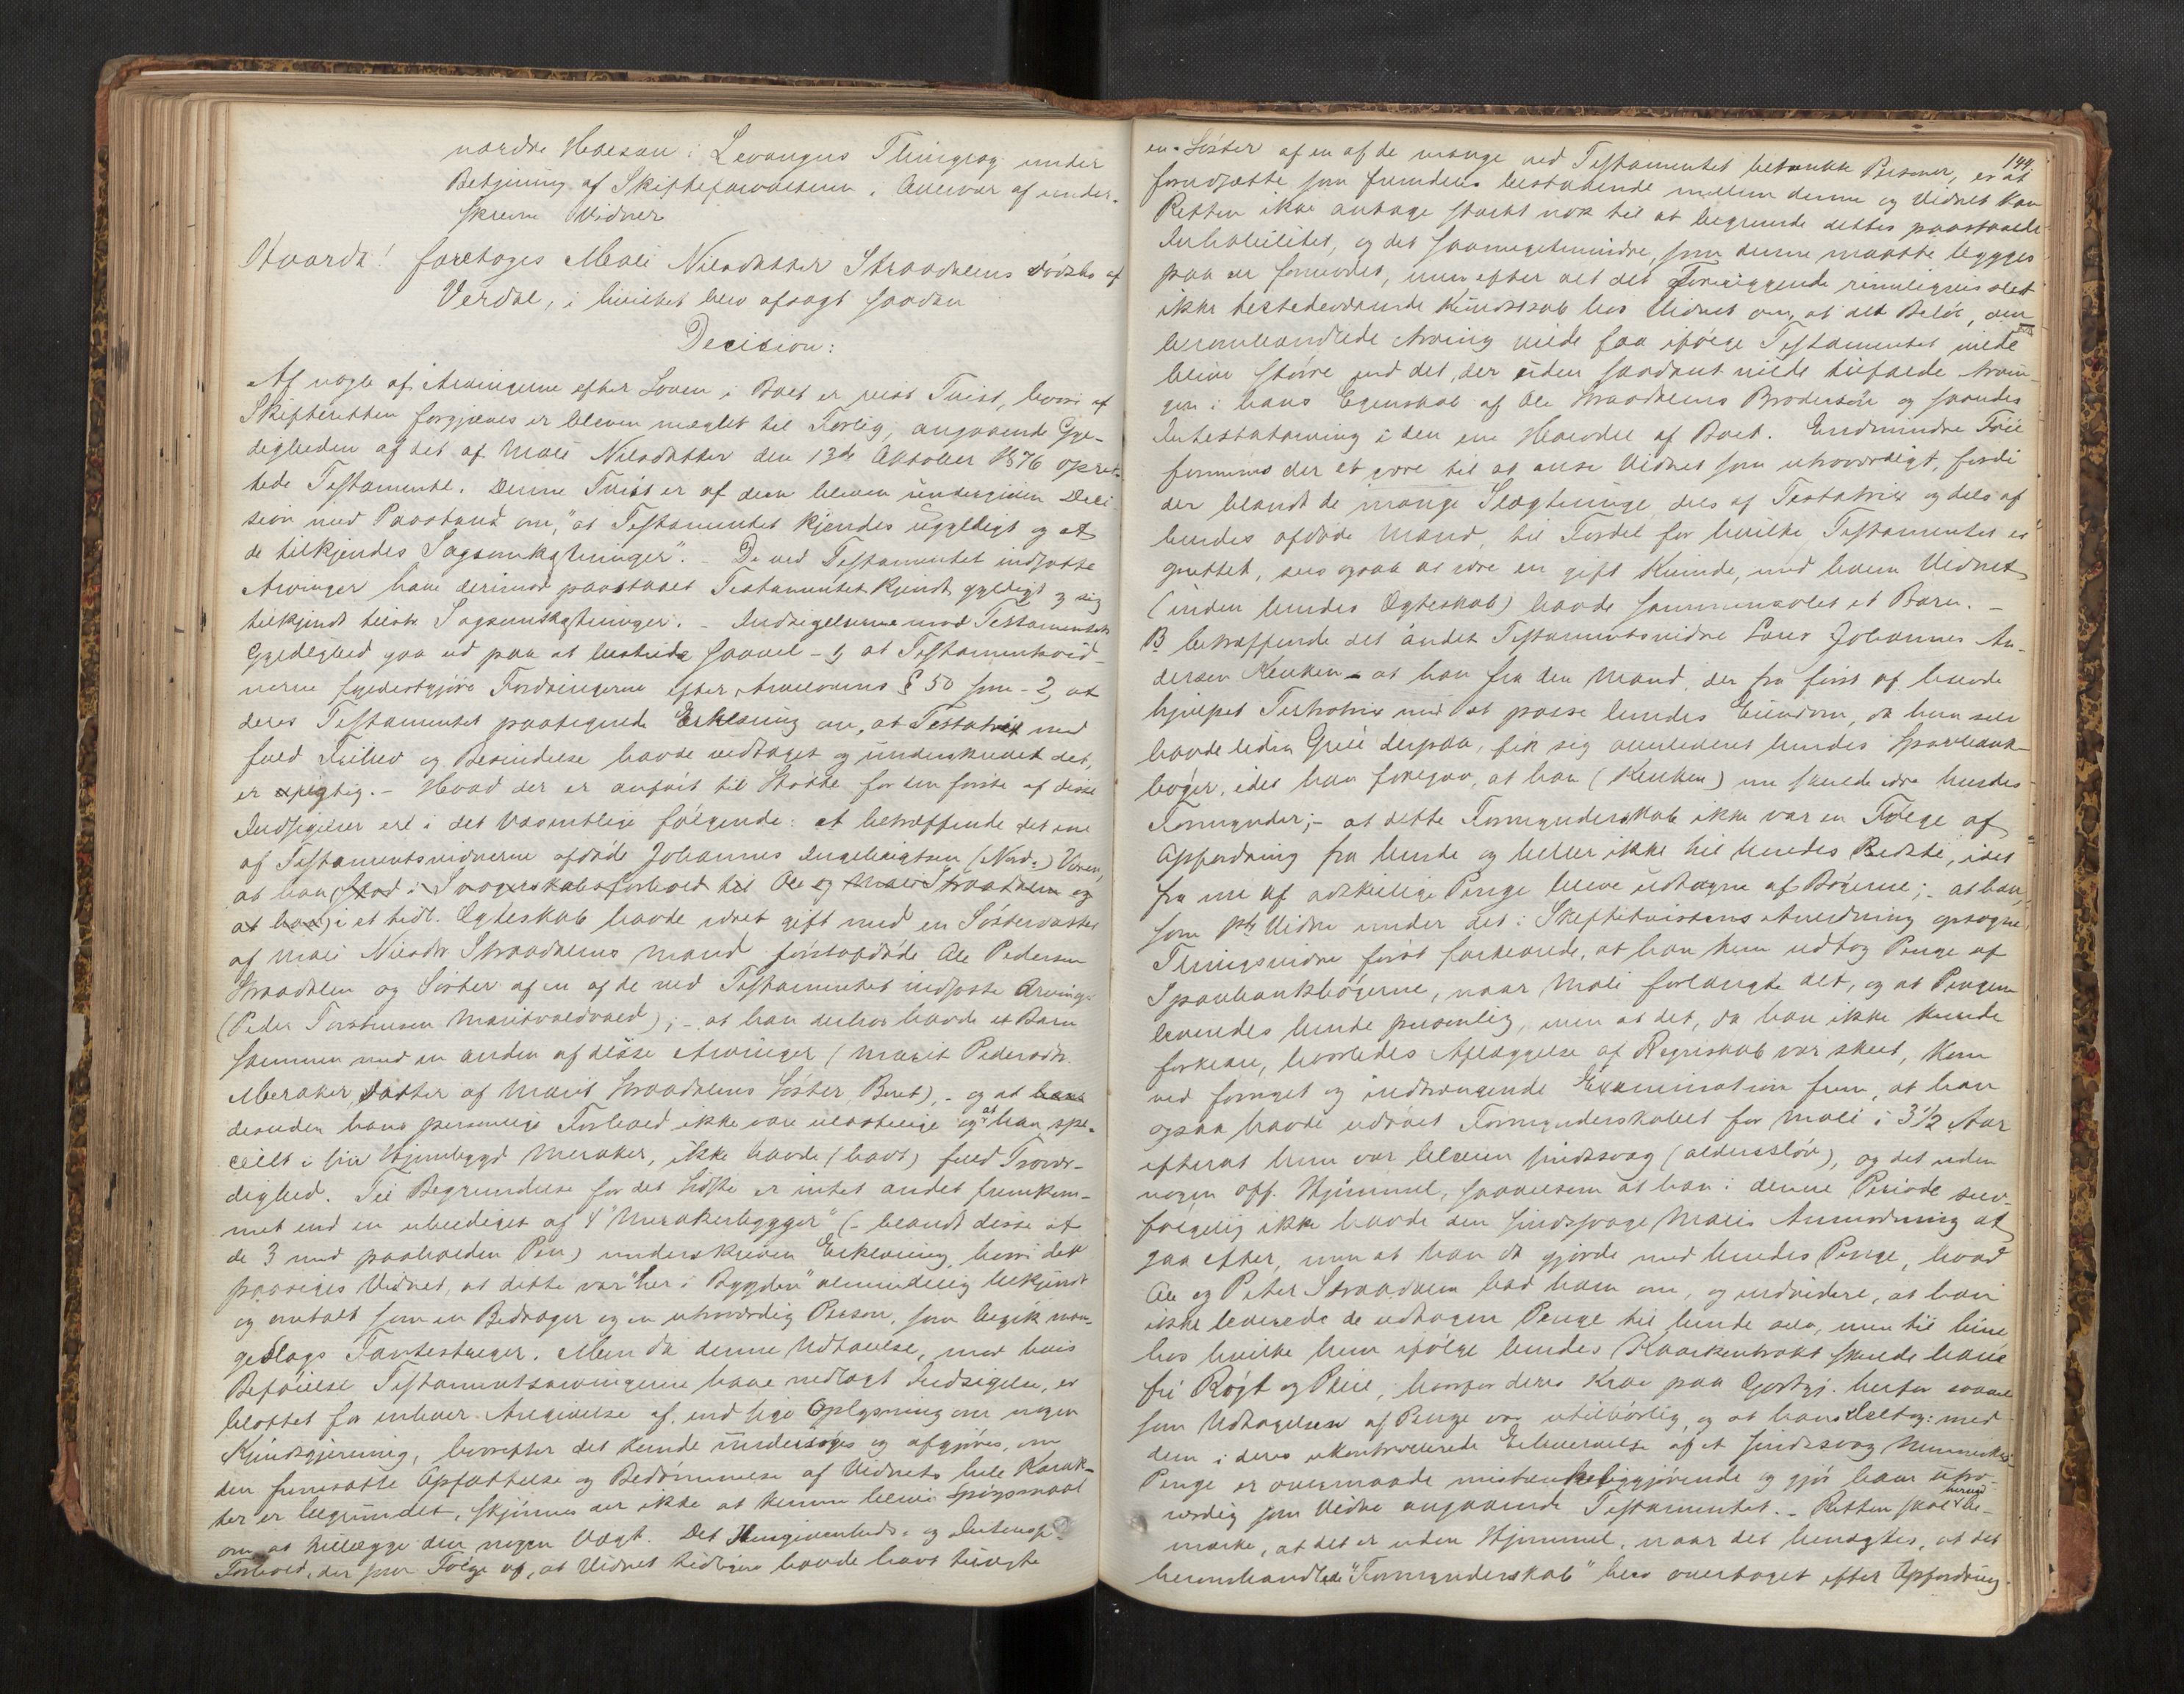 nordre Haesan i Levangers Thinglag under
Betjening af Skifteforvalteren. Overvær af under-
skrevne Vidner
Hvorda! foretages Mali Nilsdatter Straadalens Dödsbo af
Verdal, i hvilket blev afsagt saadan
Decision:
Af nogle af Arvingerne efter Loven i Boet er reist Tvist, hvori af
Skifteretten forgjæves er bleven mæglet til Forlig, angaaende Gyl-
digheden af det af Mali Nilsdatter den 13de Oktober 1876 opret-
tede Testamente. Denne Tvist er af dem bleven undergiven Deci-
sion med Paastand om, "at Testamentet kjendes ugyldigt og at
de tilkjendes Sagsomkostninger". - De ved Testamentet indsatte
Arvinger have derimod paastaaet Testamentet kjendt gyldigt og sig
tilkjendt tilste Sagsomkostninger. - Indsigelserne mod Testamentets
Gyldighed gaa ud paa at bestride saavel - 1) at Testamentsvid-
nerne fyldestgjöre Fordringerne efter Arvelovens § 50 som - 2) at
deres Testamentet paategnede Erklæring om, at Testatrix med
fuld Frihed og Besindelse havde vedtaget og underskrevet det,
er rigtig. - Hvad der er anfört til Støtte for den første af disse
Indsigelser er i det Væsentlige fölgende: at betræffende det ene
af Testamentsvidnerne afdöde Johannes Ingebrigtsen (Nord-) Veren,
at han (stod i Svogerskabsforhold til Ole og Mali Straadalen og
at han) i et tidl. Ægteskab havde været gift med en Sösterdatter
af Mali Nilsdtr Straadalens Mand förstafdöde Ole Pedersen
Straadalen og Söster af en af de ved Testamentet indsatte Arvinger
(Peder Torstensen Maritvoldvald); - at han derhos havde et Barn
sammen med en anden af disse Arvinger (Marit Pedersdtr
Meraker, Datter af Marit Straadalens Söster Beret), - og at hans
desuden hans personlige Forhold ikke vare ulastelige og at han spe-
cielt i sin Hjembygd Meraker, ikke havde (havt) fuld Trovær-
dighed. Til Begrundelse for det Sidste er intet andet fremkom-
met end en ubeediget af 4 "Merakerbygger" (- blandt disse af
de 3 med paaholden Pen) underskreven Erklæring, hvori det
paasiges Vidnet, at dette var "her i Bygden" almindelig bekjendt
og omtalt som en Bedrager og en utroværdig Person, som begik man-
geslags Fantestreger. Men da denne Udtalelse, mod hvis
Beföielse Testamentsarvingerne have nedlagt Indsigelse, er
blottet for enhver Angivelse af, end sige Oplysning om nogen
Kjendsgjerning, hvorefter det kunde undersöges og afgjöres, om
den fremsatte Opfattelse og Bedömmelse af Vidnets hele Karak-
ter er begrundet, skjönnes der ikke at kunne blive Spörgsmaal
om at tillægge den nogen Vægt. Det Hengivenheds- og Interesse-
Forhold, der som Fölge af, at Vidnet tidligere havde havt tilægte
144.
en Söster af en af de mange ved Testamentet betænkte Personer, er at
forudsætte som fremdeles bestaaende mellem denne og Vidnet kan
Retten ikke antage stærkt nok til at begrunde dettes paastaaede
Inhabilitet, og det saameget mindre, som denne maatte lægges
paa er formodet, men efter alt det Foreliggende rimeligvis slet
ikke tilstedeværende Kundskab hos Vidnet om, at det Belöb, den
heromhandlede Arving vilde faa ifölge Testamentet vilde
blive större end det, der uden saadant vilde tilfalde Arvin-
gen i hans Egenskab af Ole Straadalens Brodersön og saaledes
Intestatarving i den ene Halvdel af Boet. Endmindre Föie
fornemes der at være til at anse Vidnet som utroværdigt, fordi
der blandt de mange Slægtninge dels af Testatrix og dels af
hendes afdöde Mand, til Fordel for hvilke Testamentet er
oprettet, sees ogsaa at være en gift Kvinde, med hvem Vidnet
(inden hendes Ægteskab) havde sammenavlet et Barn. -
B betræffende det andet Testamentsvidne Lars Johannes An-
dersen Kenken - at han fra den Mand, der fra först af havde
hjulpet Testatrix med at passe hendes Eiendom, da hun selv
havde liden Greie derpaa, fik sig overleveret hendes Sparebank-
böger, idet han foregav, at han (Kenken) nu skulde være hendes
Formynder; - at dette Formynderskab ikke var en Fölge af
Opfordring fra hende og heller ikke til hendes Bedste, idet
fra nu af adskillige Penge bleve udtagne af Bögerne; - at han,
som 1ste Vidne under det i Skiftetvistens Anledning optagne
Thingsvidne först forklarede, at han kun udtog Penge af
Sparebankbögerne, naar Mali forlangte det, og at Pengene
leveredes hende personlig, men at det, da han ikke kunde
forklare, hvorledes Aflæggelse af Regnskab var skeet, kom
ved fornyet og indtrængende Examination frem, at han
ogsaa havde udövet Formynderskabet for Mali i 3½ Aar
efterat hun var bleven sindssvag (aldersslöv), og det uden
nogen off. Hjemmel, saavelsom at han i denne Periode selv-
følgelig ikke havde den sindssvage Malis Anmodning at
gaa efter, men at han da gjorde med hendes Penge, hvad
Ole og Peter Straadalen bad ham om, og endvidere, at han
ikke leverede de udtagne Penge til hende selv, men til hine
hos hvilke hun ifölge hendes Kaarkontrakt skulde have
fri Rögt og Pleie, hvorfor deres Krav paa Godtgj. herfor saavel
som Udtagelsen af Penge var utilbörlig, og at hans Deeltag: med
dem i deres ukontrollerede Erhvervelse af et sindssvag Menneskes
Penge er overmaade mistænkeliggjörende og gjör ham utro-
værdig som Vidne angaaende Testamentet. - Retten skal herved be-
mærke, at det er uden Hjemmel, naar det benægtes, at det
heromhandlede "Formynderskab" blev overtaget efter Opfordring